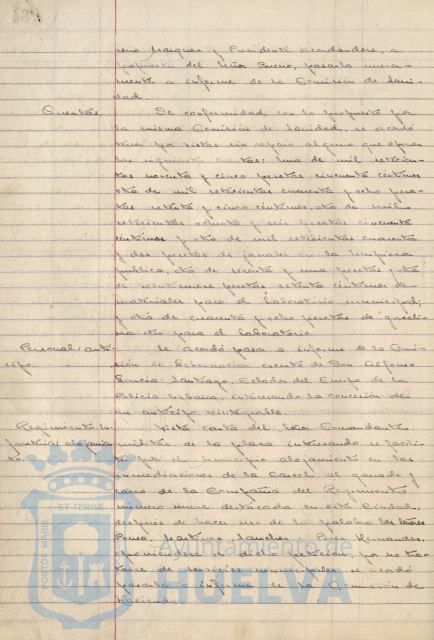 reno Marquez y Presidente acordándose, a
propuesta del Señor Bueno, pasarla nueva-
mente a informe de la Comisión de Sani-
dad.
Cuentas. De conformidad con lo propuesto por
la misma Comisión de Sanidad, se acordó
tener por vistas sin reparo alguno que oponer
las siguientes cuentas: una de mil setecien-
tas noventa y cinco pesetas cincuenta céntimos
otra de mil setecientas cuarenta y ocho pese-
tas setenta y cinco céntimos, otra de mil
setecientas ochenta y seis pesetas cincuenta
céntimos y otra de mil setecientas cuarenta
y dos pesetas de jornales en la limpieza
pública, otra de sesenta y una pesetas y otra
de pesetas setenta céntimos de
materiales para el Laboratorio municipal;
y otra de cuarenta y ocho pesetas de gasoli-
na para el laboratorio.
Personal: anti- Se acordó pase a informe de la Comi-
cipo. sión de Gobernación escrito de Don Alfonso
García Santiago, Celador del Cuerpo de la
Policía Urbana, interesando la concesión de
un anticipo reintegrable.
Regimiento In- Vista carta del Señor Comandante
fantería: alojamien- militar de la plaza interesando se facili-
to. te por el Municipio alojamiento en las
inmediaciones de la Cárcel al ganado y
carro de la Compañía del Regimiento
número nueve destacada en esta Ciudad,
después de hacer uso de la palabra los Señores
Martínez Sánchez y Pérez Hernández,
oponiéndose a dicha petición, por no tra-
tarse de servicios municipales, se acordó
pasarla a informe de la Comisión de
Hacienda.
PORTUS MARIS ET TERRÆ
Ayuntamiento de
HUELVA